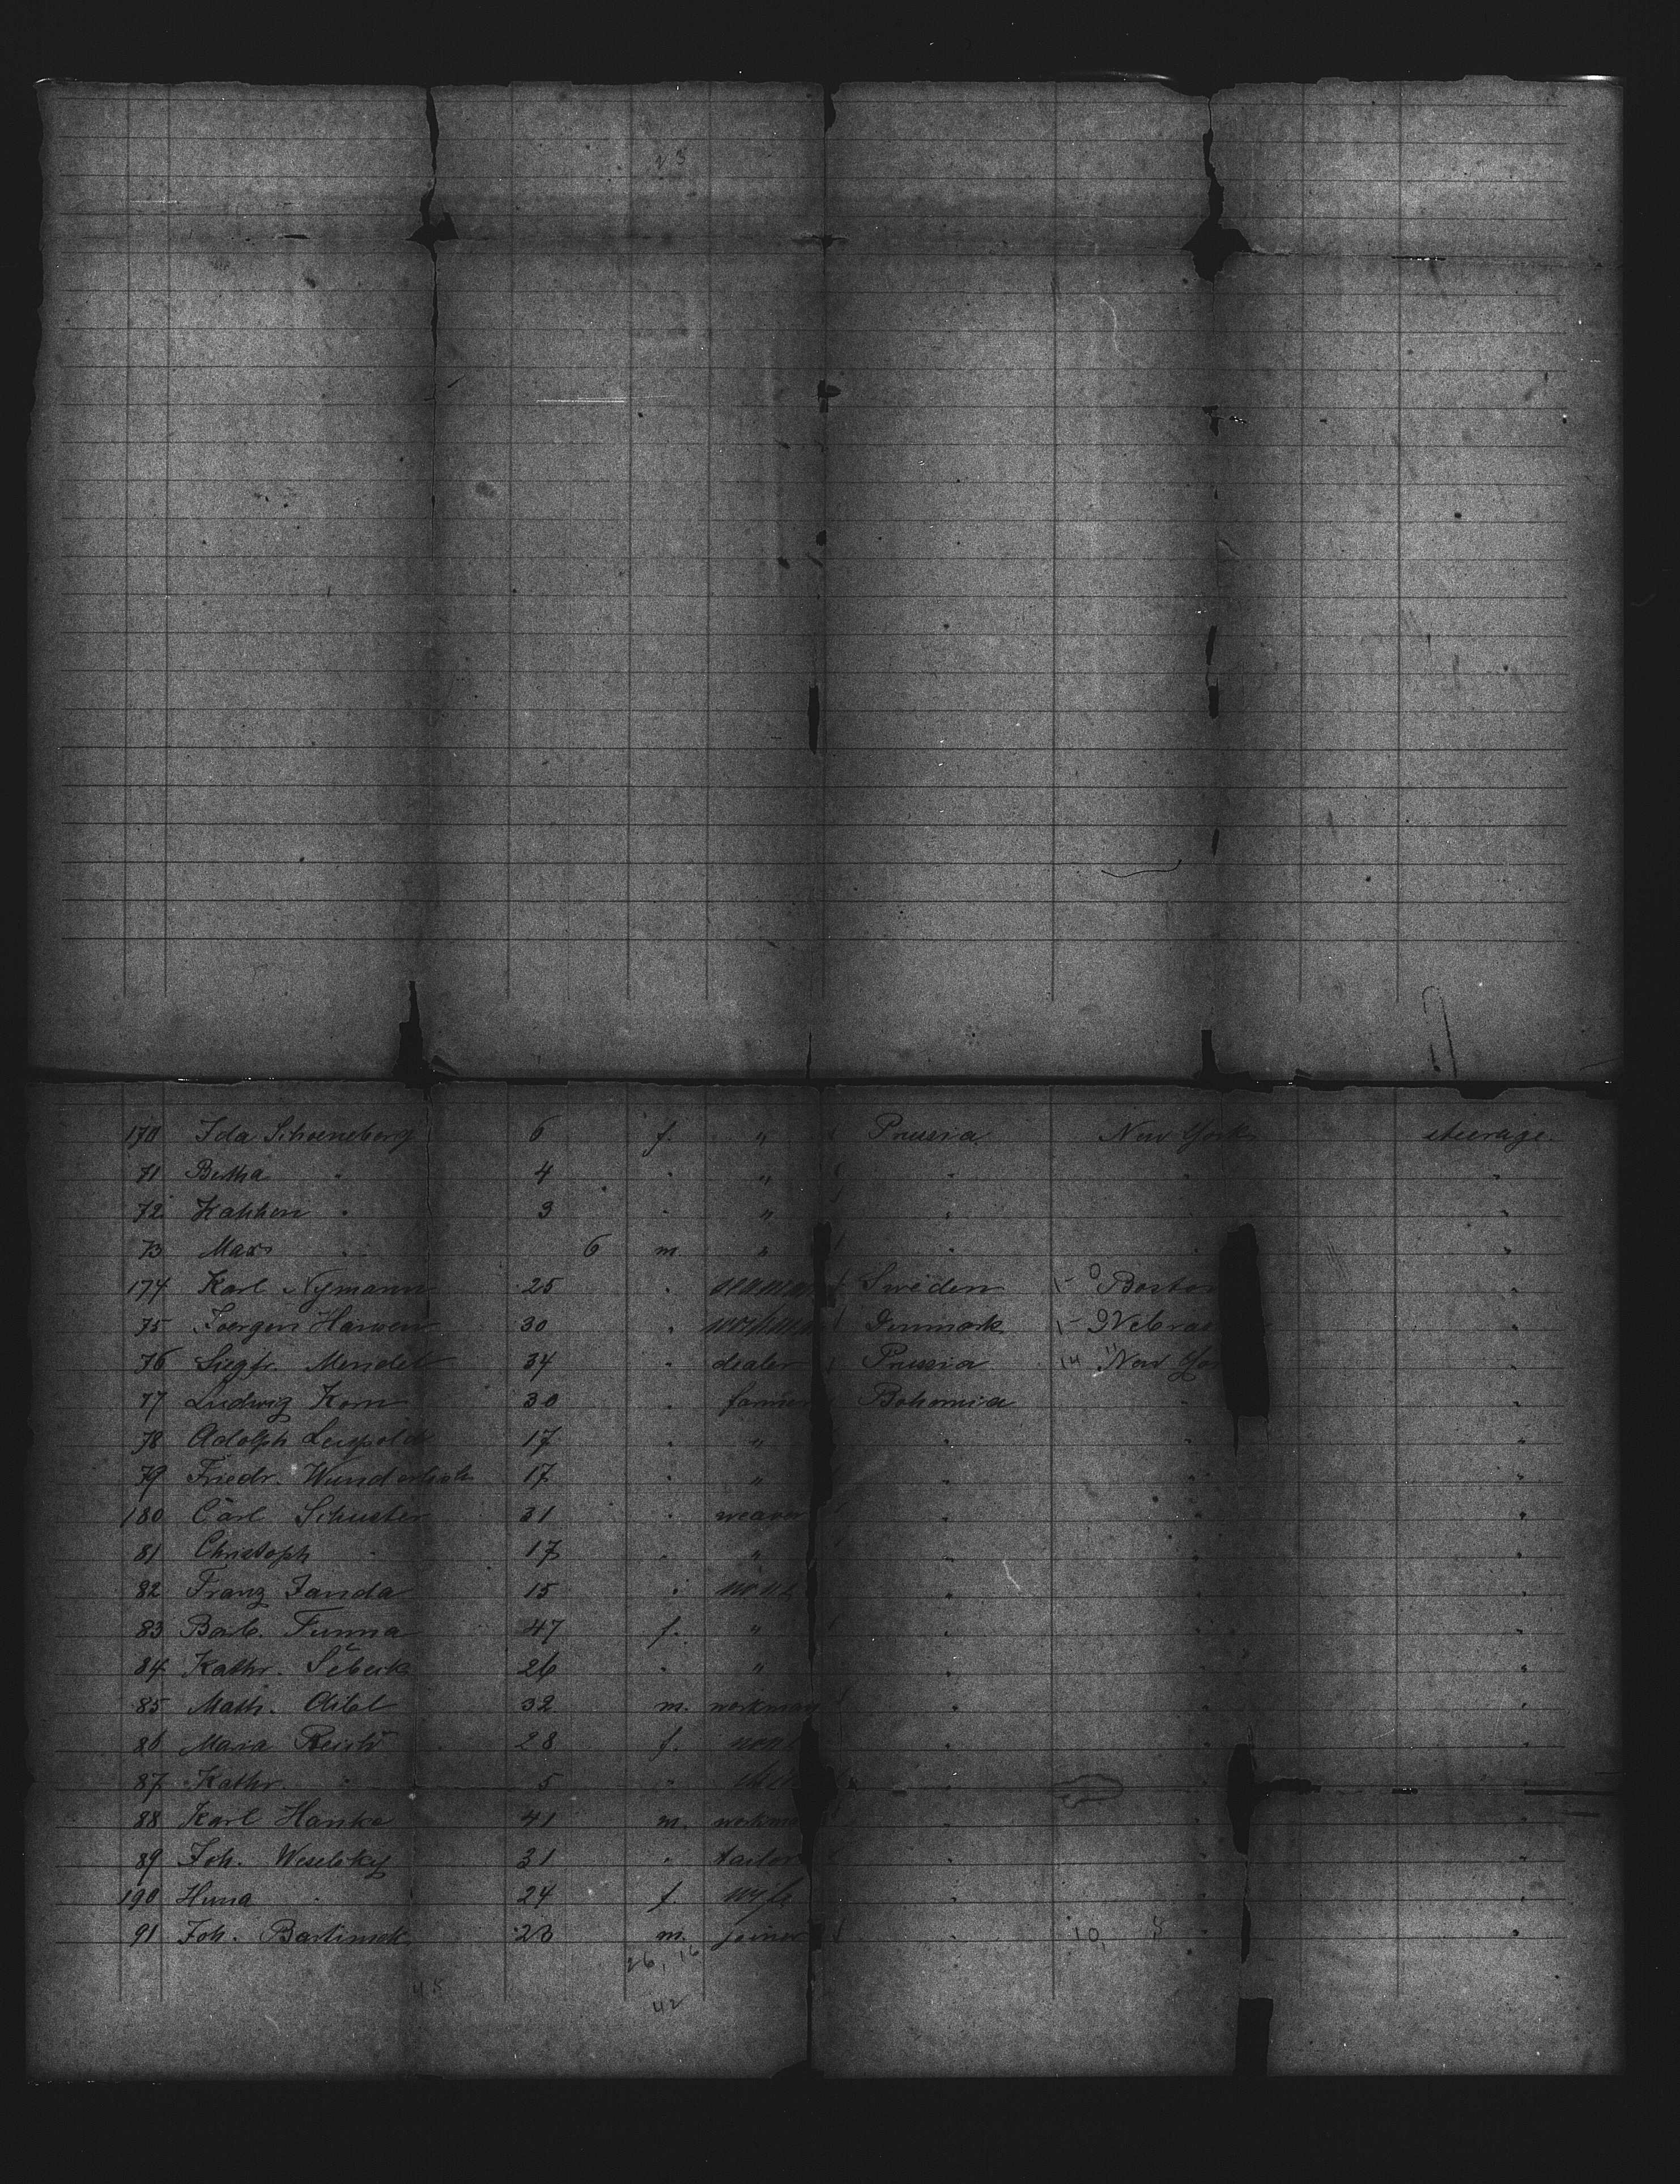 23
170 Ida Schoeneberg 6 f. " Prussia New York steerage.
71 Bertha " 4 " " " " "
72 " 3 " " " " "
73 Max " 6 m " " " "
174 Karl Nymann 25 " seaman Sweden 1- 0 Boston
75 Joergen Hansen 30 " workman Denmark 1- Nebras
76 Siegfr. Mendel 34 " dealer Prussia 14 11 New Yor
77 Ludwig Korn 30 " farmer Bohemia "
78 Adolph Leupold 17 " " " " "
79 Friedr. Wunderlich 17 " " " " "
180 Carl Schuster 31 " weaver " " "
81 Christoph " 17 " " " " "
82 Franz Janda 15 " none " " "
83 Barb. Tumna 47 f. " " " "
84 Kathr. 26 " " " " "
85 Math. 32 m. workman " " "
86 Maria 28 f. none " " "
87 Kathr. " 5 " child " "
88 Karl Hanka 41 m. workman " " "
89 Joh. Weselsky 31 " tailor " " "
190 " 24 f. wife " " "
91 Joh. Bartinek 23 m. joiner " 10, "
26, 16
48
42